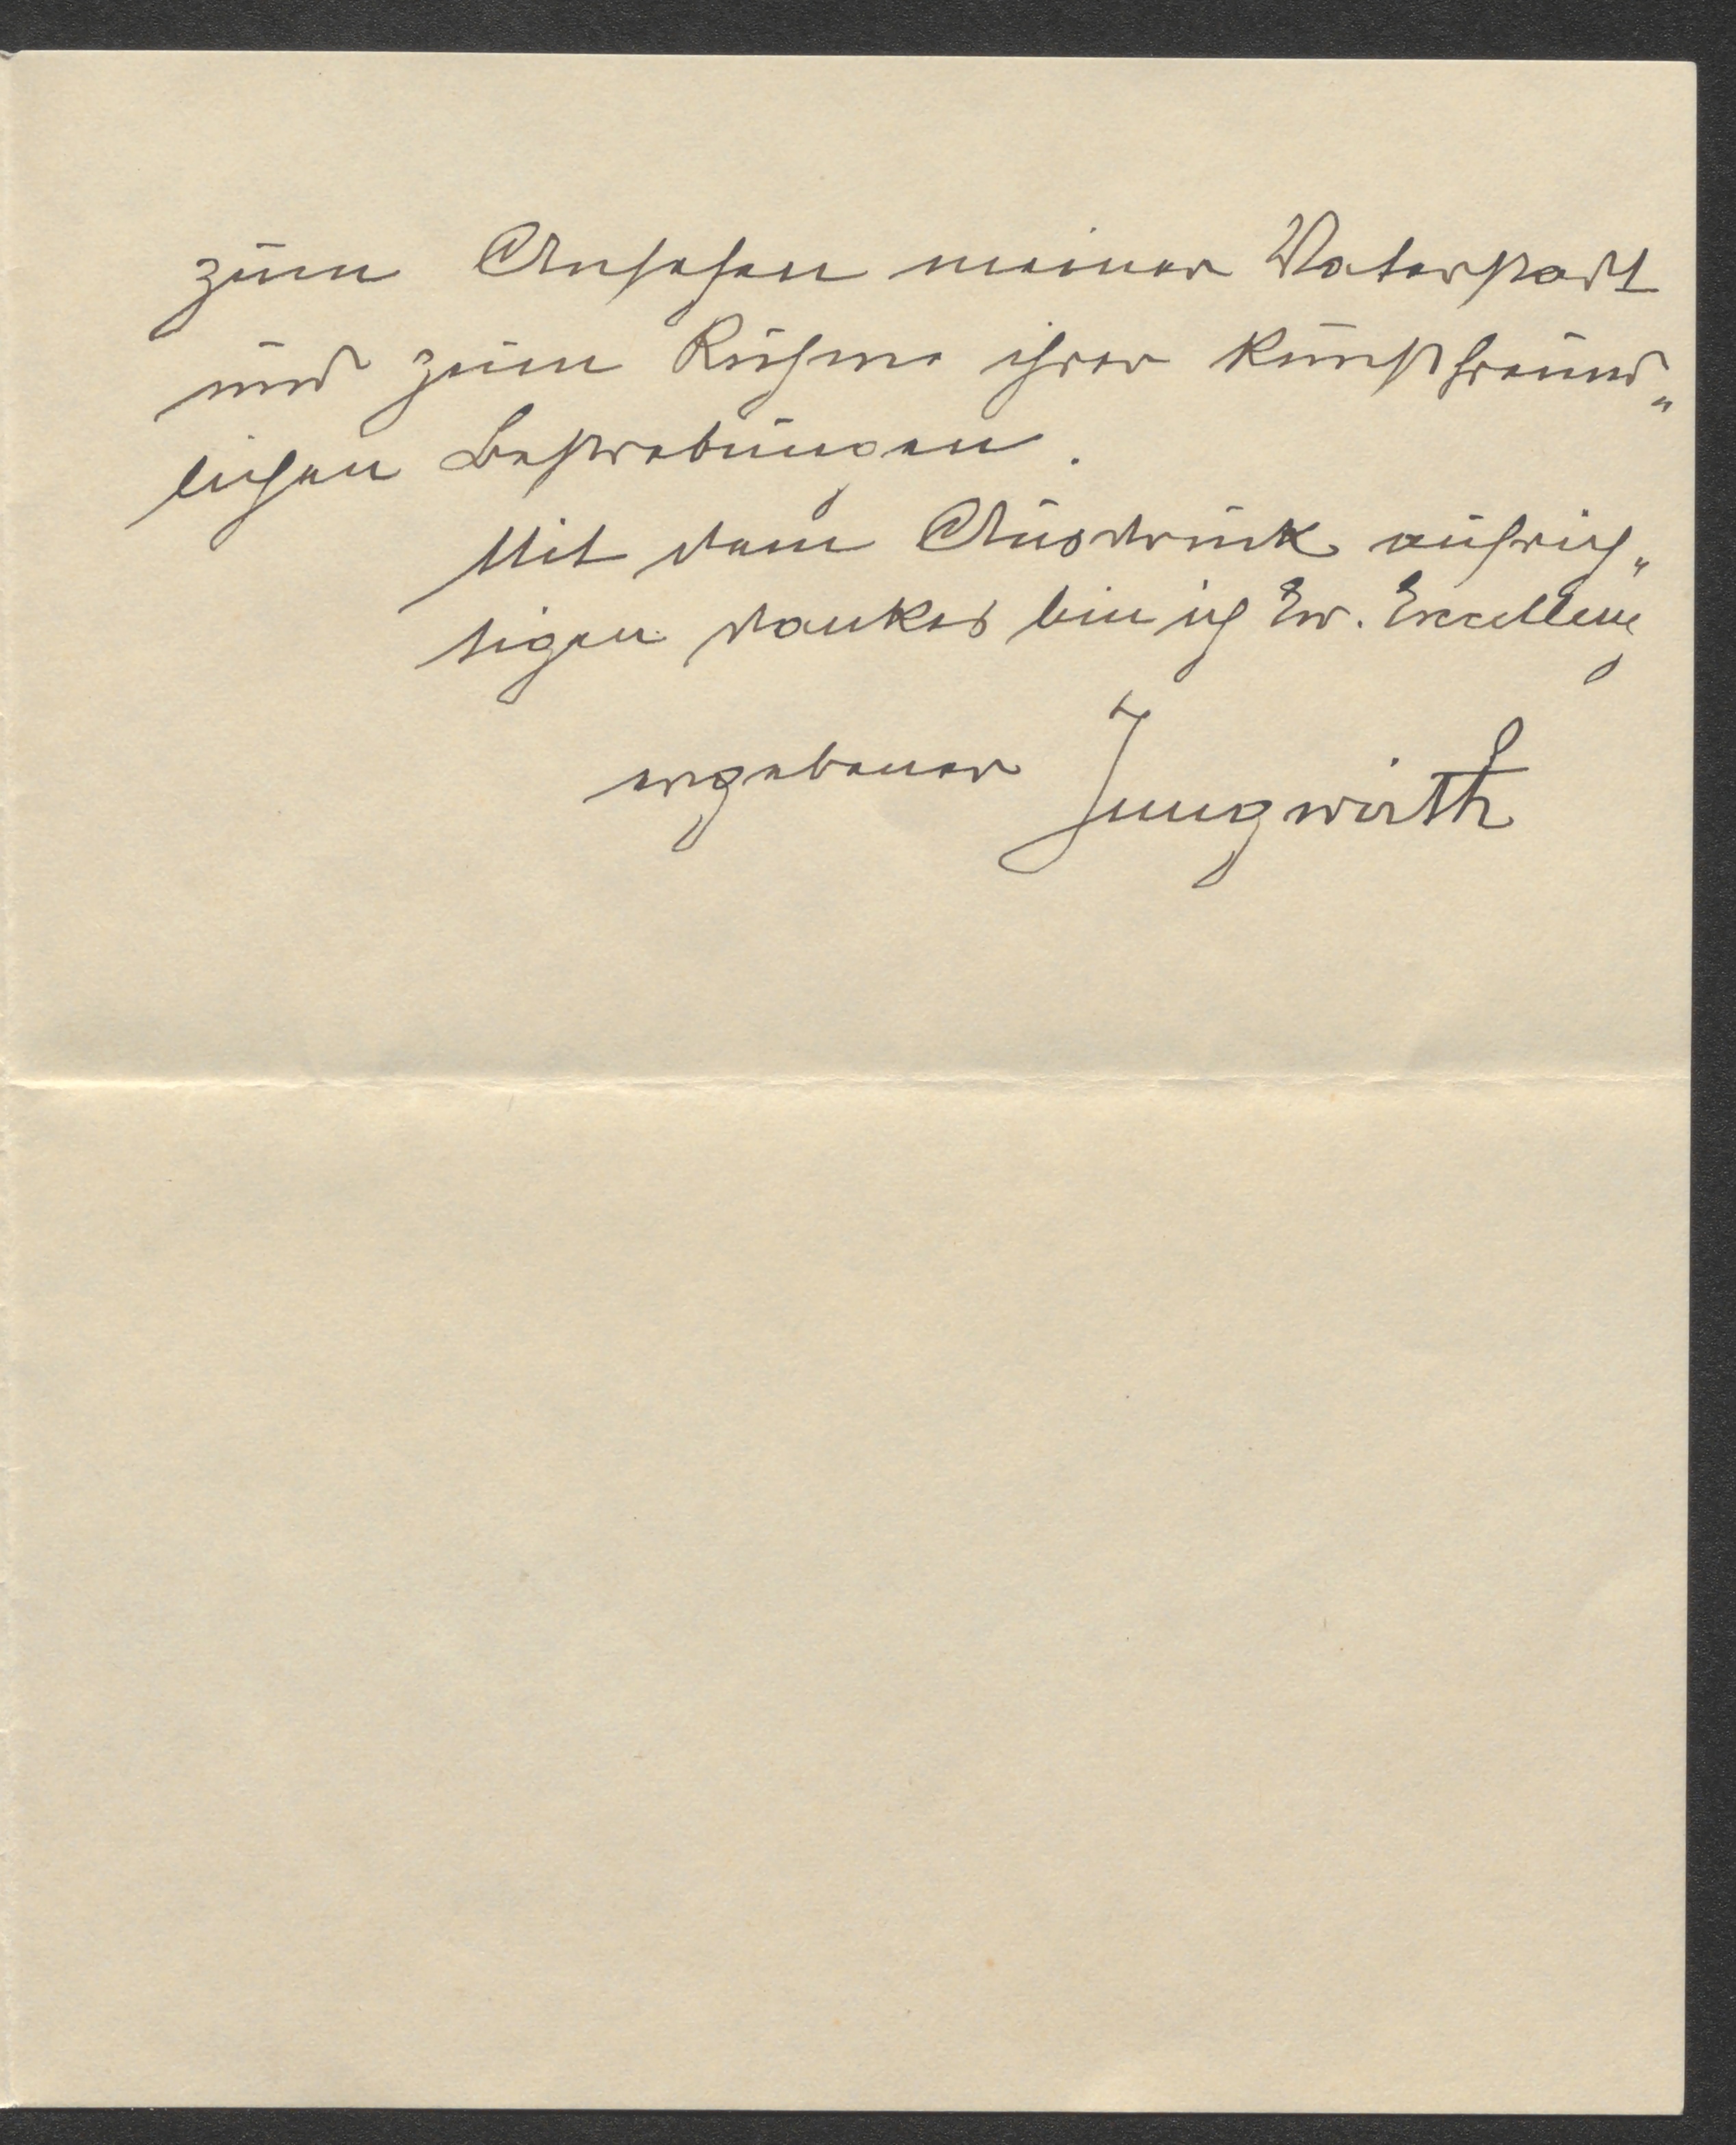 zum Ansehen meiner Vaterstadt
und zum Ruhme ihrer kunstfreund„
lichen Bestrebungen.
Mit dem Ausdruck aufrich„
tigen Dankes bin ich Ew. Excellenz
ergebener Jungwirth